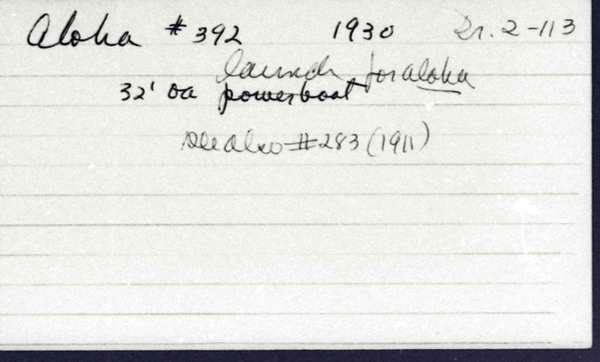 Aloha #392 1930 Dr. 2-113
launch for Aloha
32' oa powerboat
see also #283 (1911)